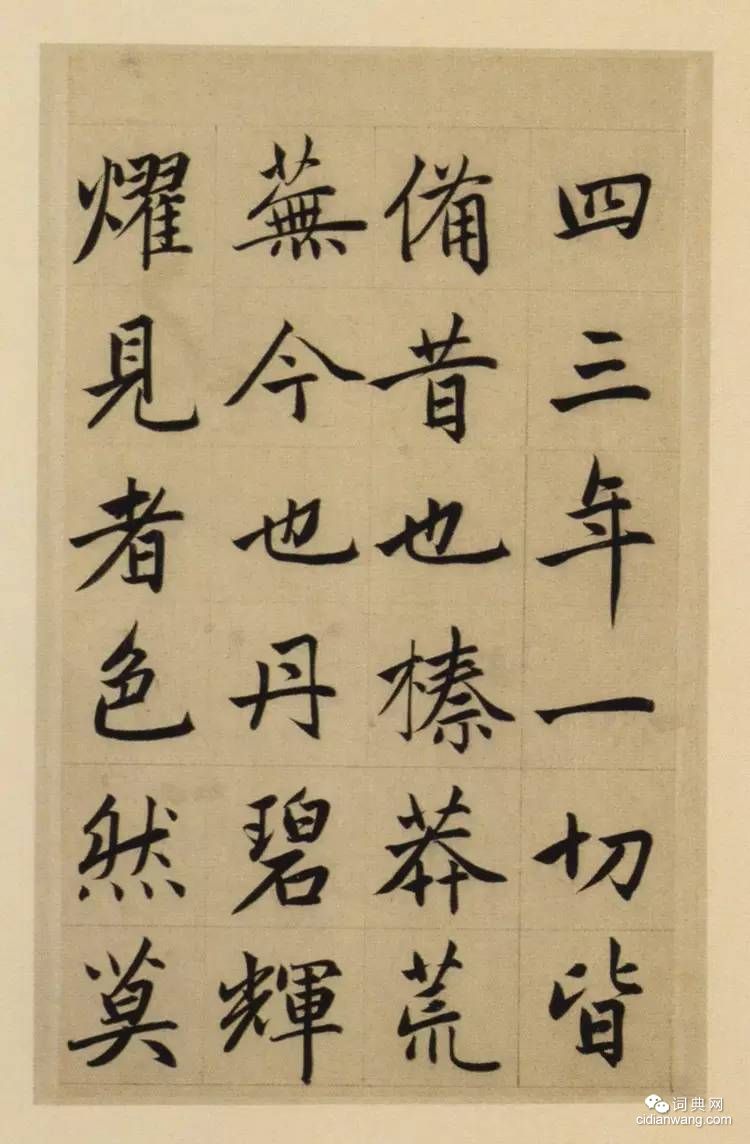 四三年一切皆
備昔也榛莽荒
蕪今也丹碧輝
燿見者色然莫
词典网
cidianwang.com